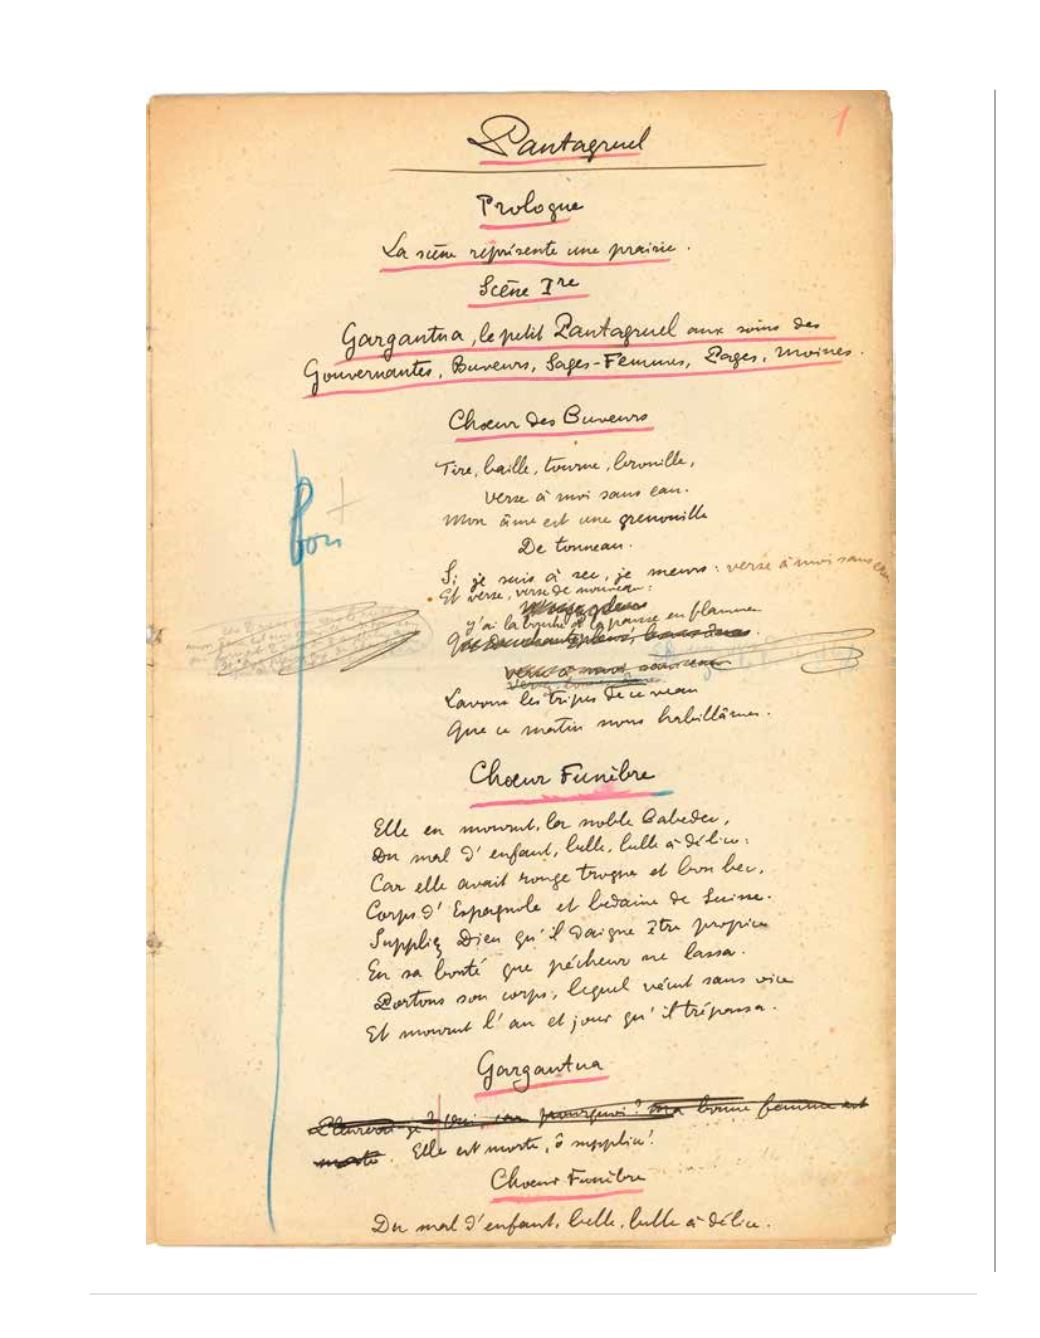 1
Pantagruel
Prologue
La scène représente une prairie.
Scène Ire
Gargantua, le petit Pantagruel aux soins des
Gouvernantes, Buveurs, Sages-Femmes, Pages, Moines.
Chœur des Buveurs
Tire, baille, tourne, brouille,
Verse à moi sans eau.
Bon
Mon âme est une grenouille
De tonneau.
Si je suis à sec, je meurs : verse à moi sans eau
Et verse, verse de nouveau :
J'ai la bouche et la panse en flamme
verse à moi sans eau
Lavons les tripes de ce veau
Que ce matin nous habillâmes.
Chœur Funèbre
Elle en mourut, la noble Badebec,
Du mal d'enfant, belle, belle à délice :
Car elle avait rouge trogne et bon bec,
Corps d'Espagnole et bedaine de Suisse.
Suppliez Dieu qu'il daigne être propice
En sa bonté que pécheur ne lassa.
Portons son corps, lequel vécut sans vice
Et mourut l'an et jour qu'il trépassa.
Gargantua
Pleurerai-je ? Oui, car pourquoi ? Ma bonne femme est
morte. Elle est morte, ô supplice !
Chœur Funèbre
Du mal d'enfant, belle, belle à délice.